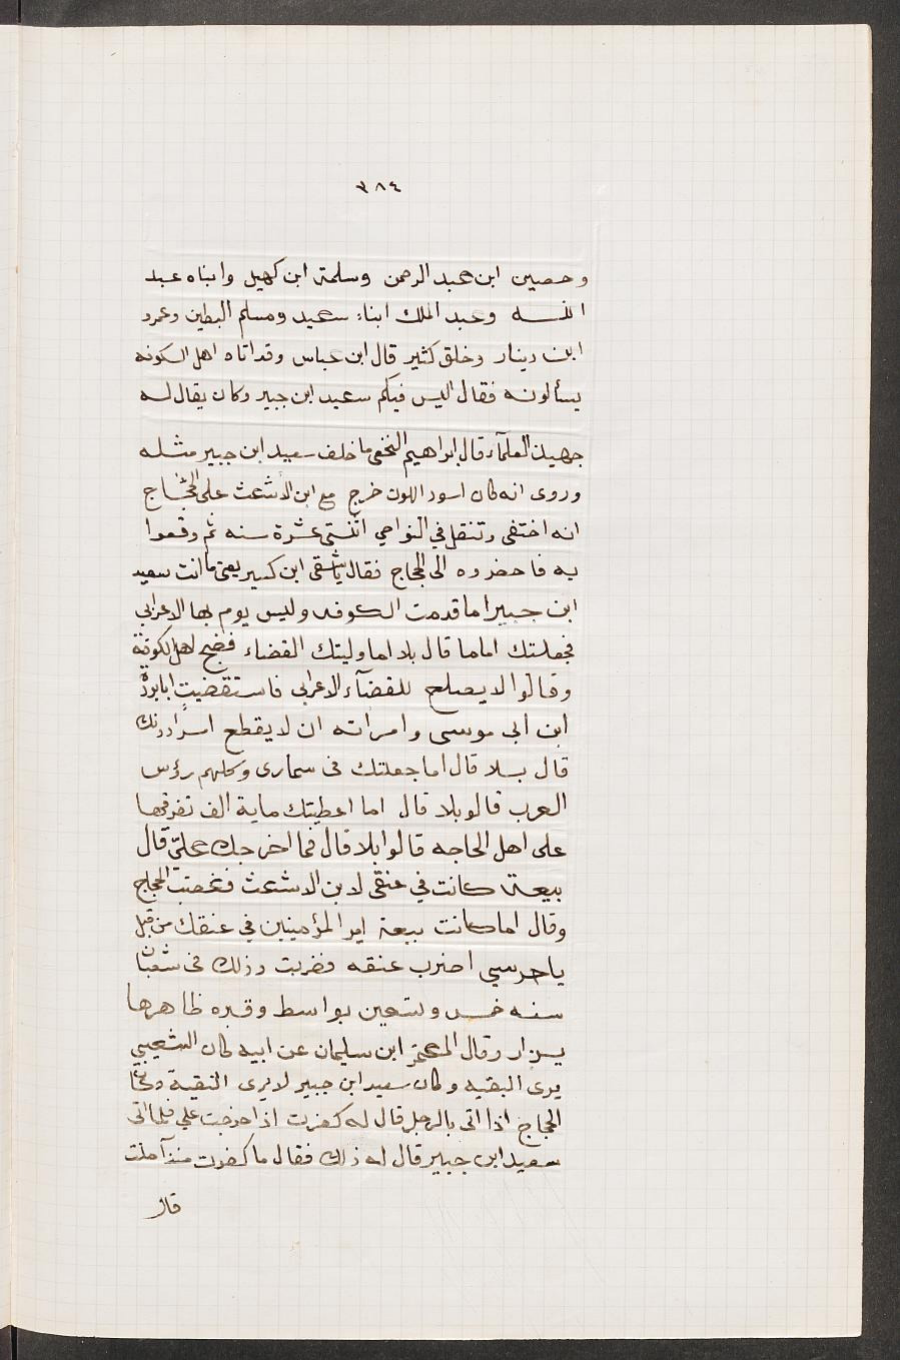 ٣٨٤
وحصين ابن عبد الرحمن وسلمة ابن كهيل وابناه عبد
الله وعبد الملك ابناء سعيد ومسلم البطين وعمرد
ابن دينار وخلق كثير قال ابن عباس وقد اتاه اهل الكوفه
يسألونه فقال اليس فيكم سعيد ابن جبير وكان يقال له
جهيذ العلمآء وقال ابراهيم النخعي ما خلف سعيد ابن جبير مثله
وروى انه كان اسود اللون خرج مع ابن الاشعث على الحجاج
انه اختفى وتنقل في النواحي اثنتي عشرة سنه ثم وقعوا
به فاحضروه الى الحجاج فقال يا شقي ابن كسير يعني ما انت سعيد
ابن جبير اما قدمت الكوفه وليس يوم بها الاعرابي
فجعلتك اماما قال بلا اما وليتك القضاء فضج اهل الكوفة
وقالوا لا يصلح للقضآء الاعرابي فاستقضيت ابا بردة
ابن ابي موسى وامراته ان لا يقطع امرا دونك
قال بلا قال اما جعلتك في سماري وكلهم رؤس
العرب قالو بلا قال اما اعطيتك ماية الف تفرقها
على اهل الحاجه قالوا بلا قال فما اخرجك عليّ قال
بيعة كانت في عنقي لابن الاشعث فغضب الحجاج
وقال اما كانت بيعة امير المؤمنين في عنقك من قبل
يا حرسي اضرب عنقه فضربت وذلك في شعبان
سنه خمس وتسعين بواسط وقبره ظاهرها
يزار وقال المعتمر ابن سليمان عن ابيه كان الشعبي
يرى البقيه وكان سعيد ابن جبير لا يرى التقية وكان
الحجاج اذا اتى بالرجل قال له كفرت اذا خرجت علي فلما اتى
سعيد ابن جبير قال له ذلك فقال ما كفرت منذ آمنت
قال